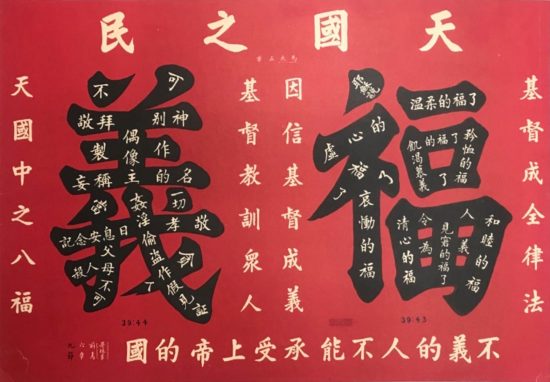 天國之民
馬太五章
基督成全律法
福
虛心的福了
哀慟的福
溫柔的福了
矜恤的福了
飢渴慕義的福了
清心的福
和睦的福
因信基督成義
基督教訓眾人
義
不可
敬拜別神
製作偶像
妄稱主的名
記念安息日
孝敬
父母
姦淫偷盜作假見証
天國中之八福
39:44
39:43
不義的人不能承受上帝的國
六章
九節